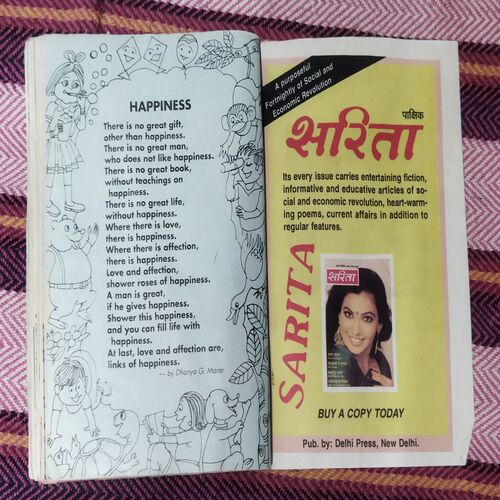 HAPPINESS
There is no great gift,
other than happiness.
There is no great man,
who does not like happiness.
There is no great book,
without teachings on
happiness.
There is no great life,
without happiness.
Where there is love,
there is happiness.
Where there is affection,
there is happiness.
Love and affection,
shower roses of happiness.
A man is great,
if he gives happiness.
Shower this happiness,
and you can fill life with
happiness.
At last, love and affection are,
links of happiness.
— by Dhanya G. Marar
A purposeful
Fortnightly of Social and
Economic Revolution
पाक्षिक
सरिता
Its every issue carries entertaining fiction,
informative and educative articles of so-
cial and economic revolution, heart-warm-
ing poems, current affairs in addition to
regular features.
SARITA
सरिता
BUY A COPY TODAY
Pub. by: Delhi Press, New Delhi.